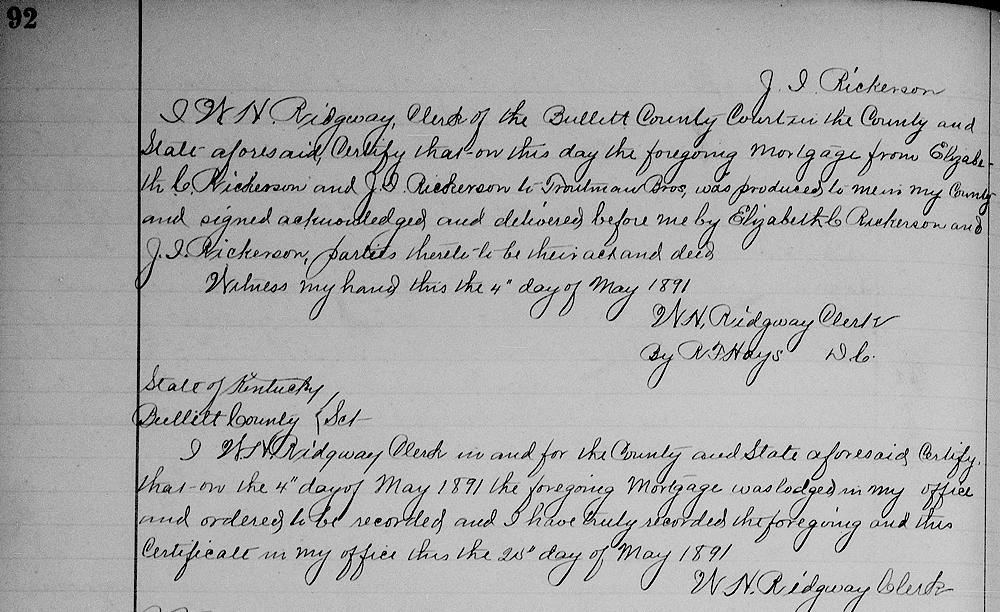 92
J. I. Rickerson
I W. H. Ridgway, Clerk of the Bullitt County Court in the County and
State aforesaid, Certify that on this day the foregoing Mortgage from Elizabe-
th C. Rickerson and J. I. Rickerson to Troutman Bros, was produced to me in my County
and signed acknowledged, and delivered before me by Elizabeth C Rickerson and
J. I. Rickerson, parties thereto to be their act and deed
Witness my hand this the 4" day of May 1891
W. H. Ridgway Clerk
By R F Hays D C.
State of Kentucky
Bullitt County { Sct
I W. H. Ridgway Clerk in and for the County and State aforesaid Certify.
that on the 4" day of May 1891 the foregoing Mortgage was lodged in my office
and ordered to be recorded, and I have truly recorded the foregoing and this
Certificate in my office this the 25" day of May 1891
W. H. Ridgway Clerk